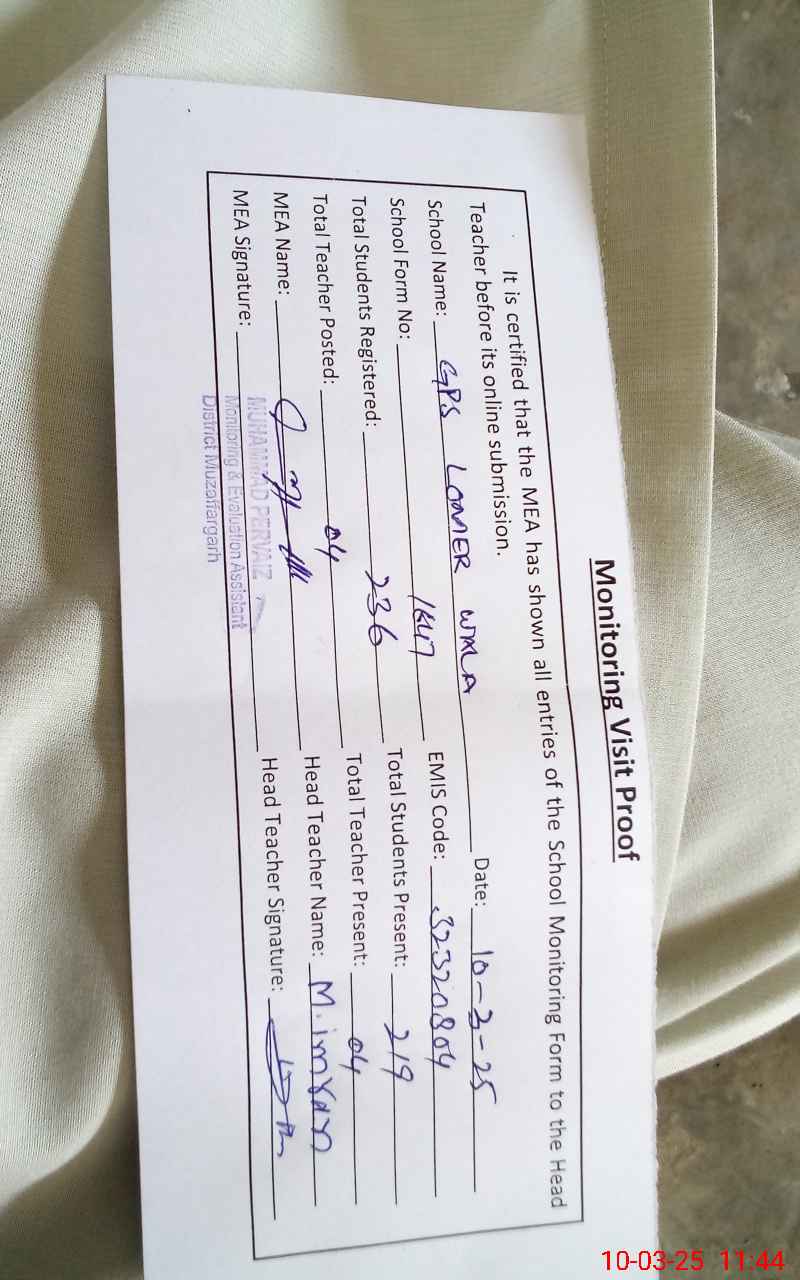 Monitoring Visit Proof
It is certified that the MEA has shown all entries of the School Monitoring Form to the Head
Teacher before its online submission. Date: 10-3-25
School Name: GPS LOMER WALA EMIS Code: 32320804
School Form No: Total Students Present: 219
Total Students Registered: 236 Total Teacher Present: 04
Total Teacher Posted: 04 Head Teacher Name: M. imran
MEA Name: Head Teacher Signature:
MEA Signature:
MUHAMMAD PERVAIZ
Monitoring & Evaluation Assistant
District Muzaffargarh
10-03-25 11:44